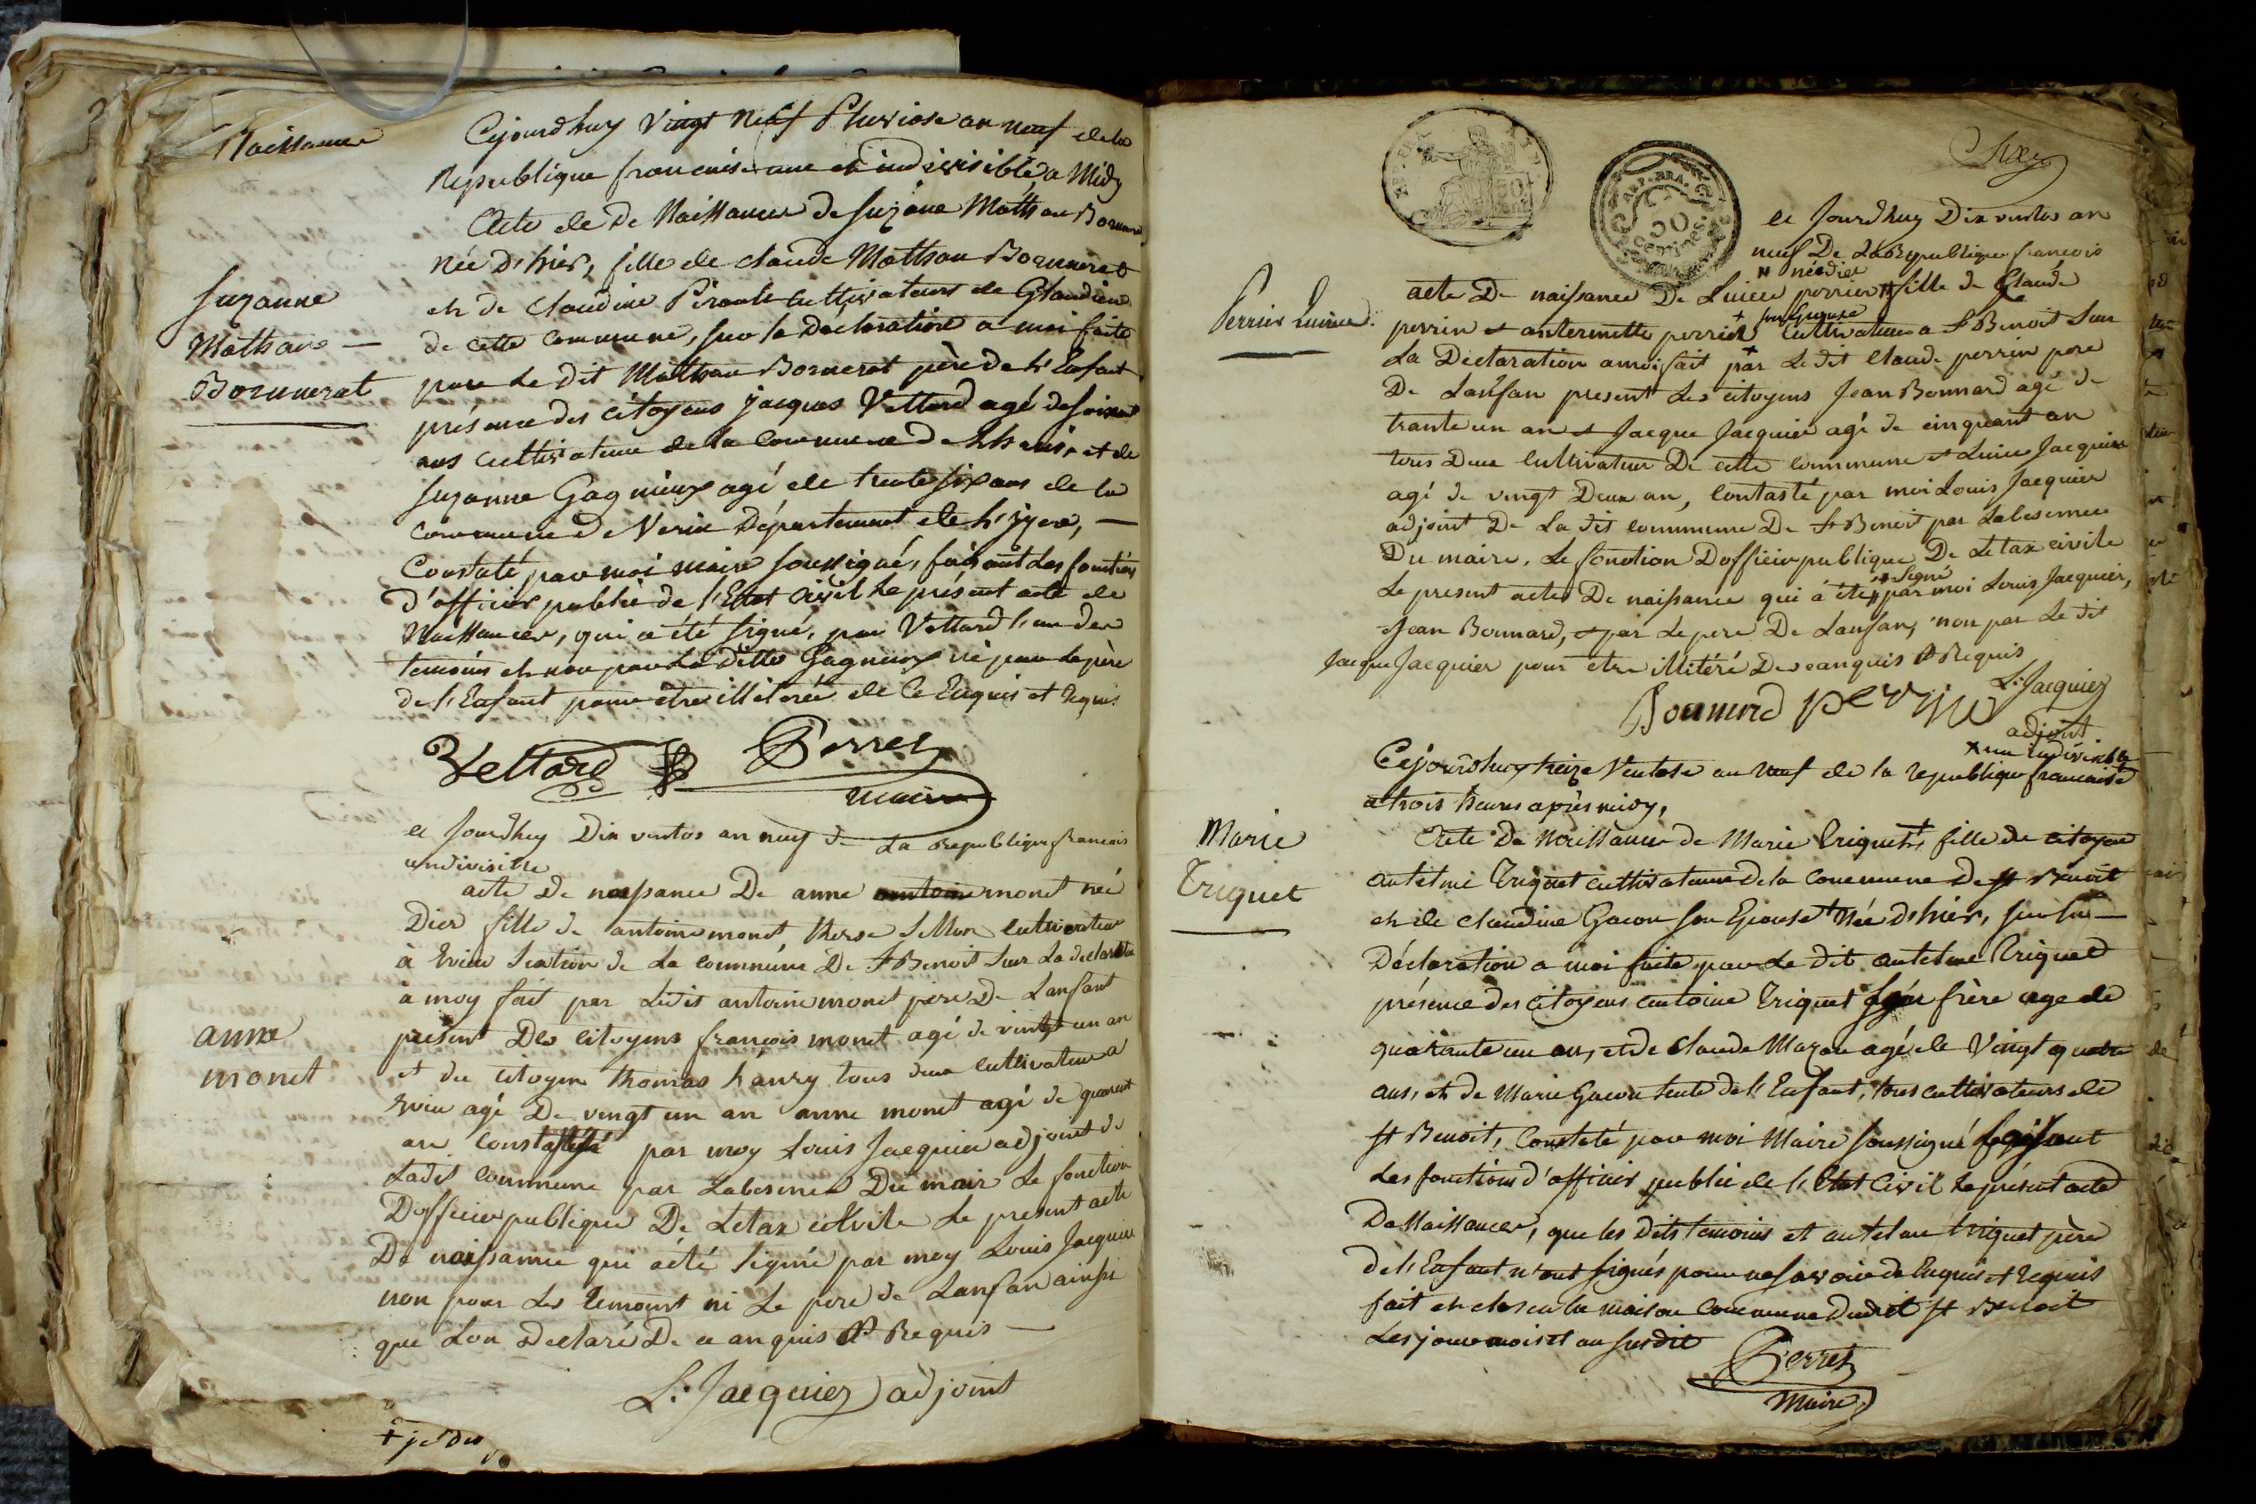 Naissance
Cejourdhuy Vingt Neuf Pluviose an neuf de la
Republique francaise une et indivisible a Midy
Acte de De Naissance de Suzane Mathan Bornerat
Née D'hier, fille de claude Mathan Bornnerat
et de Claudine Pirault cultivateurs de Glandieu
de cette commune, sur la déclaration a moi faite
par Le dit Mathan Bornerat père de L'Enfant
présence des citoyens jacques Vettard agé de soixante
ans cultivateur de la commune de et de
Suzanne Gagnieux agé de trente six ans de la
commune de Verin Département de L'izere, —
Constaté par moi maire soussigné, faisant Les fonctions
d'officier public de l'Etat Civil Le présent acte de
Naissance, qui a été signé, par Vettard l'un des
temoins et non par La ditte Gagnieux ni par le père
de l'Enfant pour etre illiterée de Ce Enquis et Requis
Suzanne
Mathan —
Bornnerat
Vettard Perret
maire
ce Jourdhuy Dix ventos an neuf de La Republique francois
undivisible
acte De naissance De anne monet née
Dier fille de antoine monet therse cultivateur
à Evieu Section de La commune De St Benoit Sur La declaration
à moy fait par Ledit antoine monet pere De Lanfant
present Des citoyens françois monet agé de vingt un an
et du citoyen thomas tous deux cultivateur a
Evieu agé De vingt un an anne monet agé de quarant
an constaté par moy Louis Jacquier adjoint de
Ladit commune par Labsence Du mair Le fonction
Dofficier publique De Letax civile Le present acte
De naissance qui a été signé par moy Louis Jacquier
non pour Les temoint ni Le pere de Lanfan ainsi
que Lon Declaré De ce anquis et Requis —
anne
monet
L. Jacquier adjoint
REP. FRA.
50
centimes
Six
ce Jourdhuy Dix ventos an
neuf De La Republique francois
# née dier
acte De naissance De Luiece perrier # fille de Claude
+ son Epouse
perrin et antermette perrier + Cultivateur a St Benoit Sur
La Declaration a moi fait par Le dit Claude perrin pere
De Lanfan present Les citoyens Jean Bonnard agé de
trante un an et Jacque Jacquier agé de cinquant an
tous Deux Cultivateur De cette commune et Luiece Jacquier
agé de vingt Deux an, Contasté par moi Louis Jacquier
adjoint De La dit commune De St Benoit par Labsence
Du maire, Le fonction Dofficier publique De Letax civile
Le present acte De naissance qui a été # signé par moi Louis Jacquier,
Jean Bonnard, et par Le pere De Lanfan, non par Le dit
Jacque Jacquier pour etre illitéré De ce anquis et Requis
Perrier Luiece
Bonnard perrin L. Jacquier
adjoint
+ une indivisible
Cejourdhuy treize Ventose an Neuf de la republique francaise
a trois heures après midy,
Acte De Naissance de Marie Triquet, fille de citoyen
antelme Triquet cultivateur de la commune de St Benoit
et de claudine Gacon son Epouse + Née d'hier, sur la —
Déclaration a moi faite par Le dit antelme Triquet
présence des citoyens antoine Triquet son frère age de
quarante un an, et de Claude Mazan agé de Vingt quatre
ans, et de Marie Gacon tente de l'Enfant, tous cultivateurs de
St Benoit, Constaté par moi Maire soussigné faisant
Les fonctions d'officier public de l'Etat Civil Le présent acte
De Naissance, que les Dits temoins et antelme triquet père
de l'Enfant n'ont signés pour ne savoir de Enquis et Requis
fait et clos en la maison commune Dudit St Benoit
Les jour mois et an susdit
Marie
Triquet
Perret
Maire